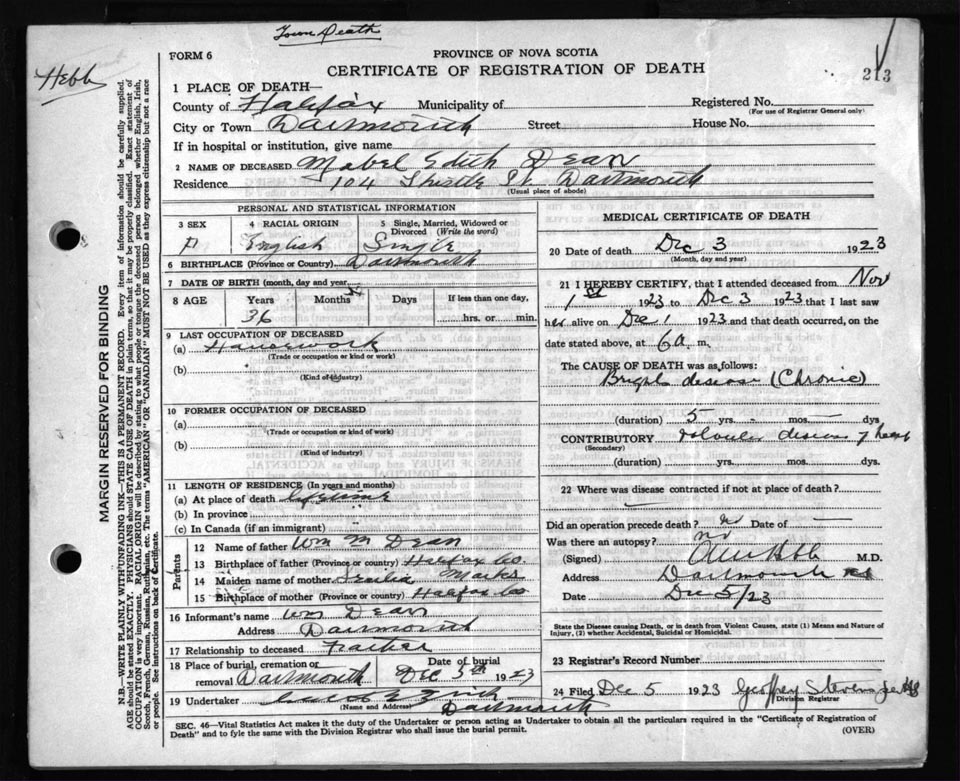 Town Death
FORM 6
PROVINCE OF NOVA SCOTIA
CERTIFICATE OF REGISTRATION OF DEATH
213
Hebb
1 PLACE OF DEATH—
County of Halifax Municipality of Registered No.
(For use of Registrar General only)
City or Town Dartmouth Street House No.
If in hospital or institution, give name
2 NAME OF DECEASED Mabel Edith Dean
Residence 104 Thistle St Dartmouth
(Usual place of abode)
PERSONAL AND STATISTICAL INFORMATION
3 SEX 4 RACIAL ORIGIN 5 Single, Married, Widowed or Divorced (Write the word)
English Single
6 BIRTHPLACE (Province or Country) Dartmouth
7 DATE OF BIRTH (month, day and year)
8 AGE Years Months Days If less than one day,
36 hrs. or min.
9 LAST OCCUPATION OF DECEASED
(a) Housework
(Trade or occupation or kind or work)
(b)
(Kind of industry)
10 FORMER OCCUPATION OF DECEASED
(a)
(Trade or occupation or kind of work)
(b)
(Kind of industry)
11 LENGTH OF RESIDENCE (In years and months)
(a) At place of death lifetime
(b) In province
(c) In Canada (if an immigrant)
Parents
12 Name of father Wm M Dean
13 Birthplace of father (Province or country) Halifax Co.
14 Maiden name of mother Marks
15 Birthplace of mother (Province or country) Halifax Co
16 Informant's name Wm Dean
Address Dartmouth
17 Relationship to deceased Father
18 Place of burial, cremation or removal Dartmouth Date of burial Dec 5th 1923
19 Undertaker
(Name and Address) Dartmouth
MEDICAL CERTIFICATE OF DEATH
20 Date of death Dec 3 1923
(Month, day and year)
21 I HEREBY CERTIFY, that I attended deceased from Nov
1st 1923 to Dec 3 1923 that I last saw
her alive on Dec 1 1923 and that death occurred, on
date stated above, at 6 a. m.
The CAUSE OF DEATH was as follows:
Brights disease (Chronic)
(duration) 5 yrs. — mos. dys
CONTRIBUTORY valvular disease of heart
(Secondary)
(duration) yrs. mos. dys.
22 Where was disease contracted if not at place of death?
—
Did an operation precede death? no Date of —
Was there an autopsy? no
(Signed) M.D.
Address Dartmouth
Date Dec 5/23
State the Disease causing Death, or in death from Violent Causes, state (1) Means and Nature of Injury, (2) whether Accidental, Suicidal or Homicidal.
23 Registrar's Record Number
24 Filed, Dec 5 1923 Geoffrey Stevens
Division Registrar
SEC. 46—Vital Statistics Act makes it the duty of the Undertaker or person acting as Undertaker to obtain all the particulars required in the "Certificate of Registration of
Death" and to fyle the same with the Division Registrar who shall issue the burial permit.
(OVER)
MARGIN RESERVED FOR BINDING
N.B.—WRITE PLAINLY WITH UNFADING INK—THIS IS A PERMANENT RECORD. Every item of information should be carefully supplied.
AGE should be stated EXACTLY. PHYSICIANS should STATE CAUSE OF DEATH in plain terms, so that it may be properly classified. Exact statement of
OCCUPATION is very important. RACIAL ORIGIN will be described by stating to what people or tongue the deceased person belonged, whether English, Irish,
Scotch, French, German, Russian, Ruthenian, etc. The terms "AMERICAN" OR "CANADIAN" MUST NOT BE USED as they express citizenship but not a race
or people. See instructions on back of Certificate.